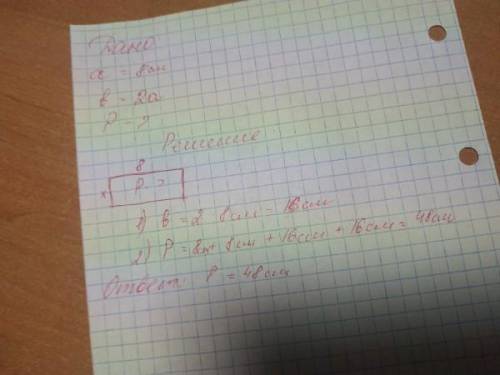 Дано
a = 8см
b - 2a
P - ?
Решение
8
x P - ?
1) b = 2 8см = 16см
2) P = 8см + 8см + 16см + 16см = 48см
Ответ: P = 48см